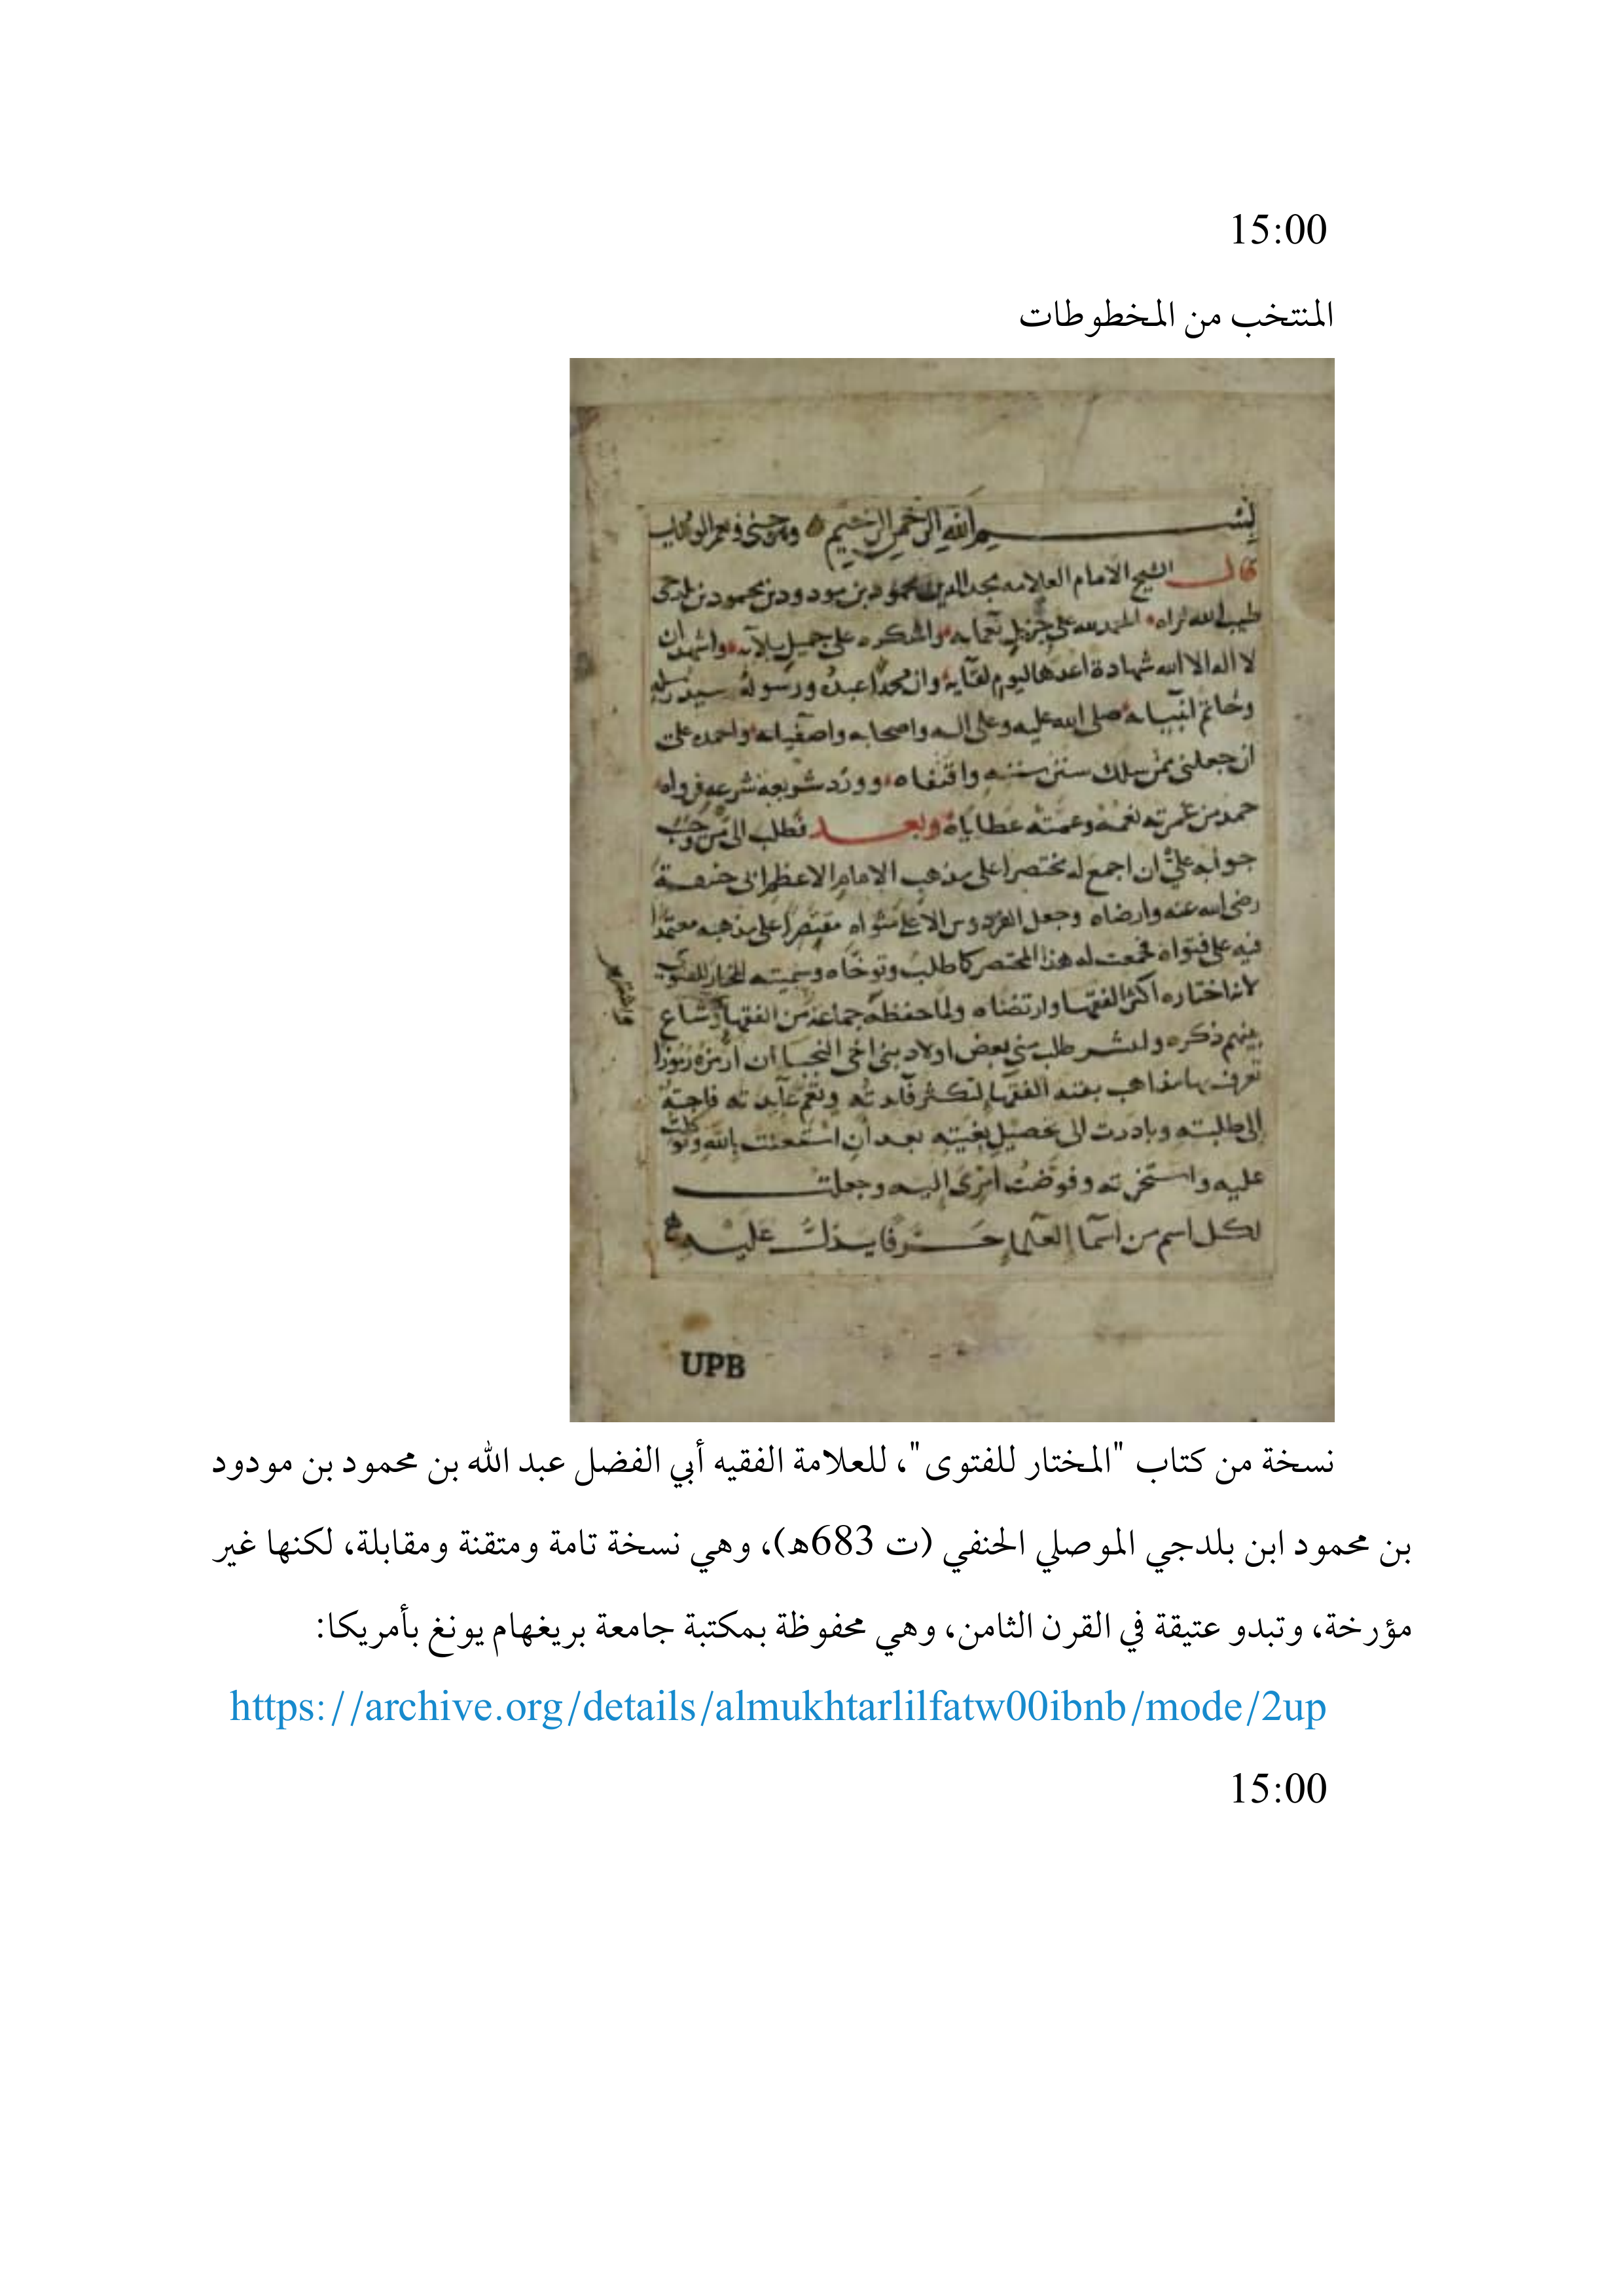 15:00
المنتخب من المخطوطات
بسم الله الرحمن الرحيم وهو حسبى ونعم الوكيل
قال الشيخ الامام العلامه مجد الدين محمود بن مودود بن محمود بن بلدجى
طيب الله ثراه الحمد لله على جزيل نعمايه واشكره على جميل بلآيه واشهد ان
لا اله الا الله شهادة اعدها ليوم لقآيه وان محمدا عبده ورسوله سيد رسله
وخاتم انبيايه صلى الله عليه وعلى اله واصحابه واصفيايه واحمده على
ان جعلنى ممن سلك سنن سننه واقتفاه وورد شريعه شرعه فرواه
حمد من غمرته نعمه وعمته عطاياه وبعد فطلب الى من وجب
جوابه علي ان اجمع له مختصرا على مذهب الامام الاعظم ابى حنيفة
رضى الله عنه وارضاه وجعل الفردوس الاعلى مثواه مقتصرا على مذهبه معتمدا
فيه على فتواه فجمعت له هذا المختصر كما طلب وتوخاه وسميته المختار للفتوى
لانه اختاره اكثر الفقها وارتضاه ولما حفظه جماعة من الفقها وشاع
بينهم ذكره وانتشر طلب منى بعض اولاد بنى اخى النجبا ان ارمزه رموزا
تعرف بها مذاهب بقية الفقهآ لتكثر فآيدته وتعم عآيدته فاجبته
الى طلبته وبادرت الى تحصيل بغيته بعد ان استعنت بالله وتوكلت
عليه واستخرته وفوضت امرى اليه وجعلت
لكل اسم من اسمآ العلمآ حرفا يدل عليه
UPB
نسخة من كتاب "المختار للفتوى"، للعلامة الفقيه أبي الفضل عبد الله بن محمود بن مودود
بن محمود ابن بلدجي الموصلي الحنفي (ت 683ه)، وهي نسخة تامة ومتقنة ومقابلة، لكنها غير
مؤرخة، وتبدو عتيقة في القرن الثامن، وهي محفوظة بمكتبة جامعة بريغهام يونغ بأمريكا:
https://archive.org/details/almukhtarlilfatw00ibnb/mode/2up
15:00